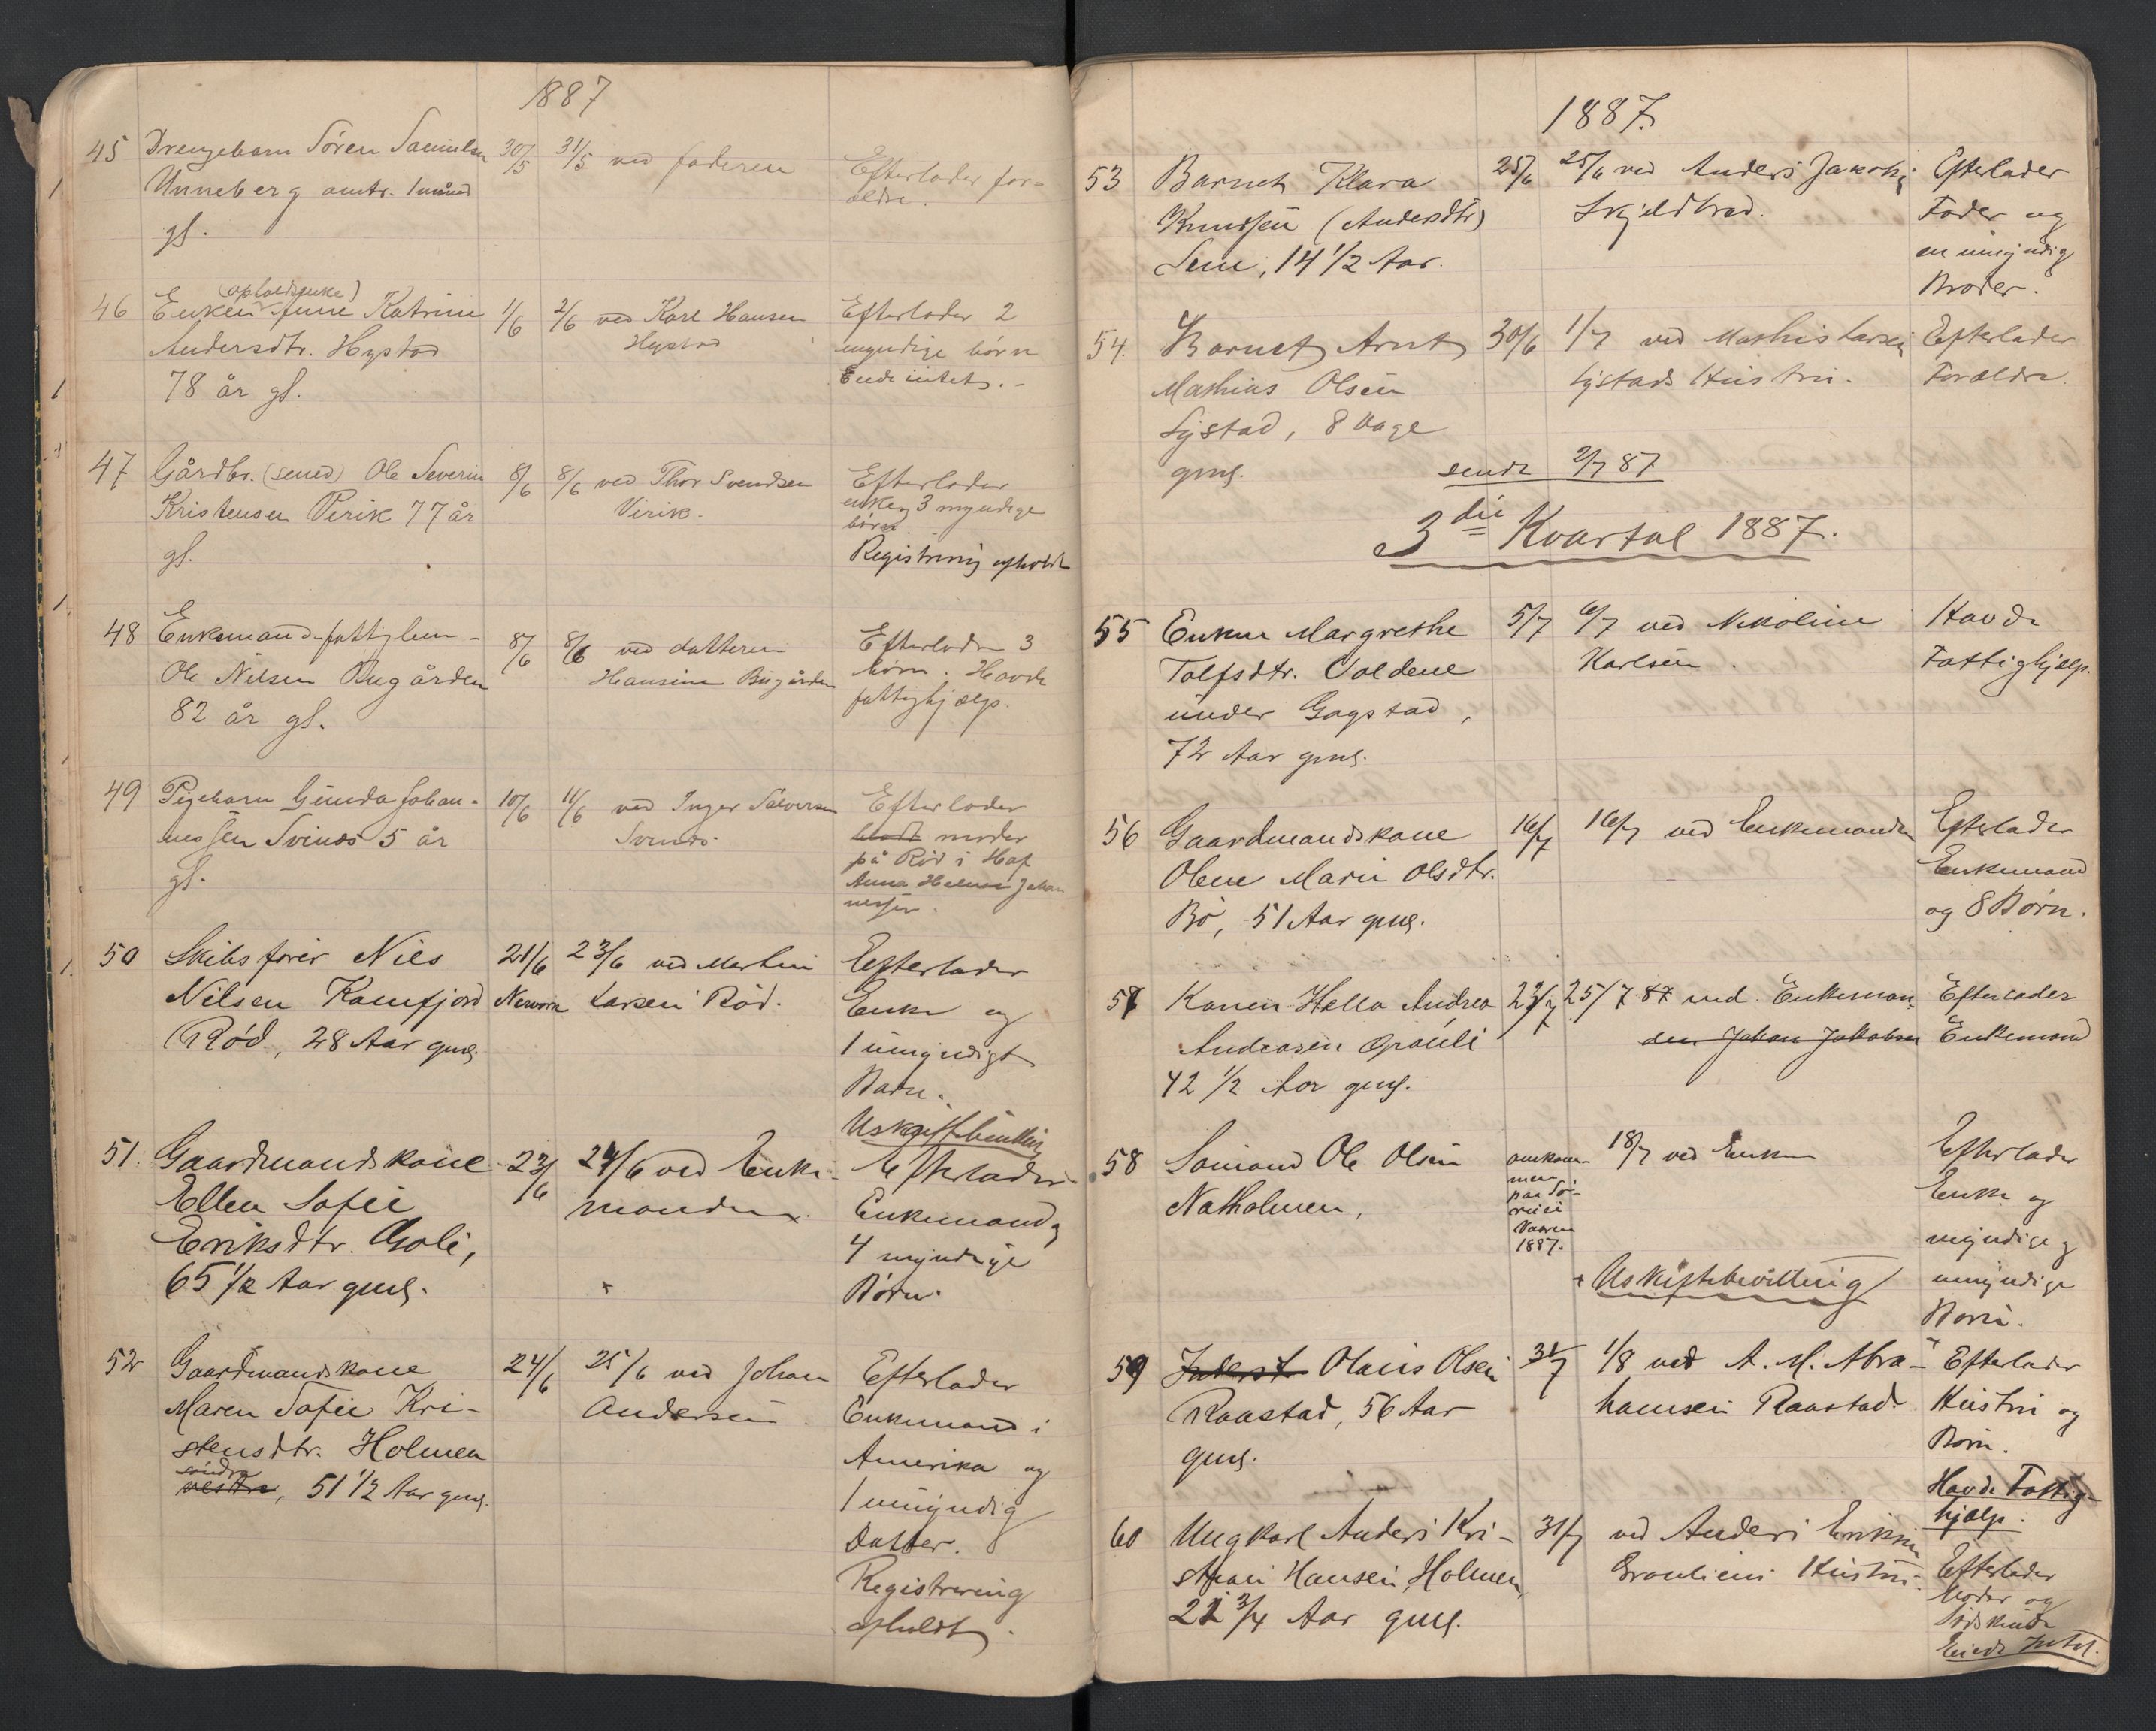 1887
45 Drengebarn Sören Samuelsen 30/5 31/5 ved faderen Efterlader for-
Unneberg omtr. 1 måned ældre.
gl.
(opholdsenke)
46 Enken Anne Katrine 1/6 2/6 ved Karl Hansen Efterlader 2
Andersdtr. Hystad Hystad myndige börn
78 år gl. Eiede intet.-
47 Gårdbr. (Ole Severin 8/6 8/6 ved Thor Svendsen Efterlader
Kristensen Virik 77 år Virik. enke, 3 myndige
gl. börn.
Registrering afholdt
48 Enkemand-fattiglem- 8/6 8/6 ved datteren Efterlader 3
Ole Nilsen Bugården Hansine Bugården börn. Havde
82 år gl. fattighjælp.
49 Pigebarn Gunda Johan- 10/6 11/6 ved Inger Salvesen Efterlader
nessen Svinös 5 år Svinös. moder
gl. på Röd i Haf
Anna Helene Johan
nessen.
50 Skibsförer Nils 21/6 23/6 ved Martin Efterlader
Nilsen Kamfjord Larsen Röd. Enke og
Rød, 28 Aar gml. 1 umyndigt
Barn.
Uskiftbevilling
51. Gaardmandskone 23/6 24/6 ved Enke- Efterlader
Ellen Sofie manden. Enkemand,
Eriksdtr. Goli, 4 myndige
65 1/2 Aar gml. Börn.
52 Gaardmandskone 24/6 25/6 ved Johan Efterlader
Maren Sofie Kri- Andersen. Enkemand i
stensdtr. Holmen Amerika og
söndre
vestre, 51 1/2 Aar gml. 1 umyndig
Datter.
Registrering
afholdt.
1887.
53 Barnet Klara 25/6 25/6 ved Anders Jakobs. Efterlader
Knudsen (Andersdtr) Skjeldbred. Fader og
Sem, 14 1/2 Aar. en umyndig
Broder.
54. Barnet Arnt 30/6 1/7 ved Mathis Larsen Efterlader
Mathias Olsen Lystads Hustru. Forældre.
Lystad, 8 Dage
gml. sendt 2/7 87
3die Kvartal 1887.
55 Enken Margrethe 5/7 6/7 ved Nikoline Havde
Tolfsdtr. Voldene Karlsen. Fattighjælp.
under Gogstad,
72 Aar gml.
56 Gaardmandskone 16/7 16/7 ved Enkemanden Efterlader
Olene Marie Olsdtr. Enkemand
Bö, 51 Aar gml. og 8 Börn.
57 Konen Hella Andrea 22/7 25/7 87 ved Enkeman- Efterlader
Andreasen Grauli den Johan Jakobsen Enkemand
42 1/2 Aar gml.
58 Sømand Ole Olsen omkom- 18/7 ved Enken Efterlader
men Enke og
Natholmen, paa Sö-
reise
Vaaren myndige og
1887.
+ Uskiftebevilling umyndige
Börn.
59 Inderst Olaus Olsen 31/7 1/8 ved A. M. Abra- + Efterlader
Raastad, 56 Aar hamsen Raastad. Hustru og
gml. Börn.
Havde Fattig-
hjælp.
60 Ungkarl Anders Kri- 31/7 ved Anders Eriksen
stian Hansen, Holmen, Grauliens Hustru. Efterlader
21 3/4 Aar gml. Moder og
Södskende
Eiede Intet.